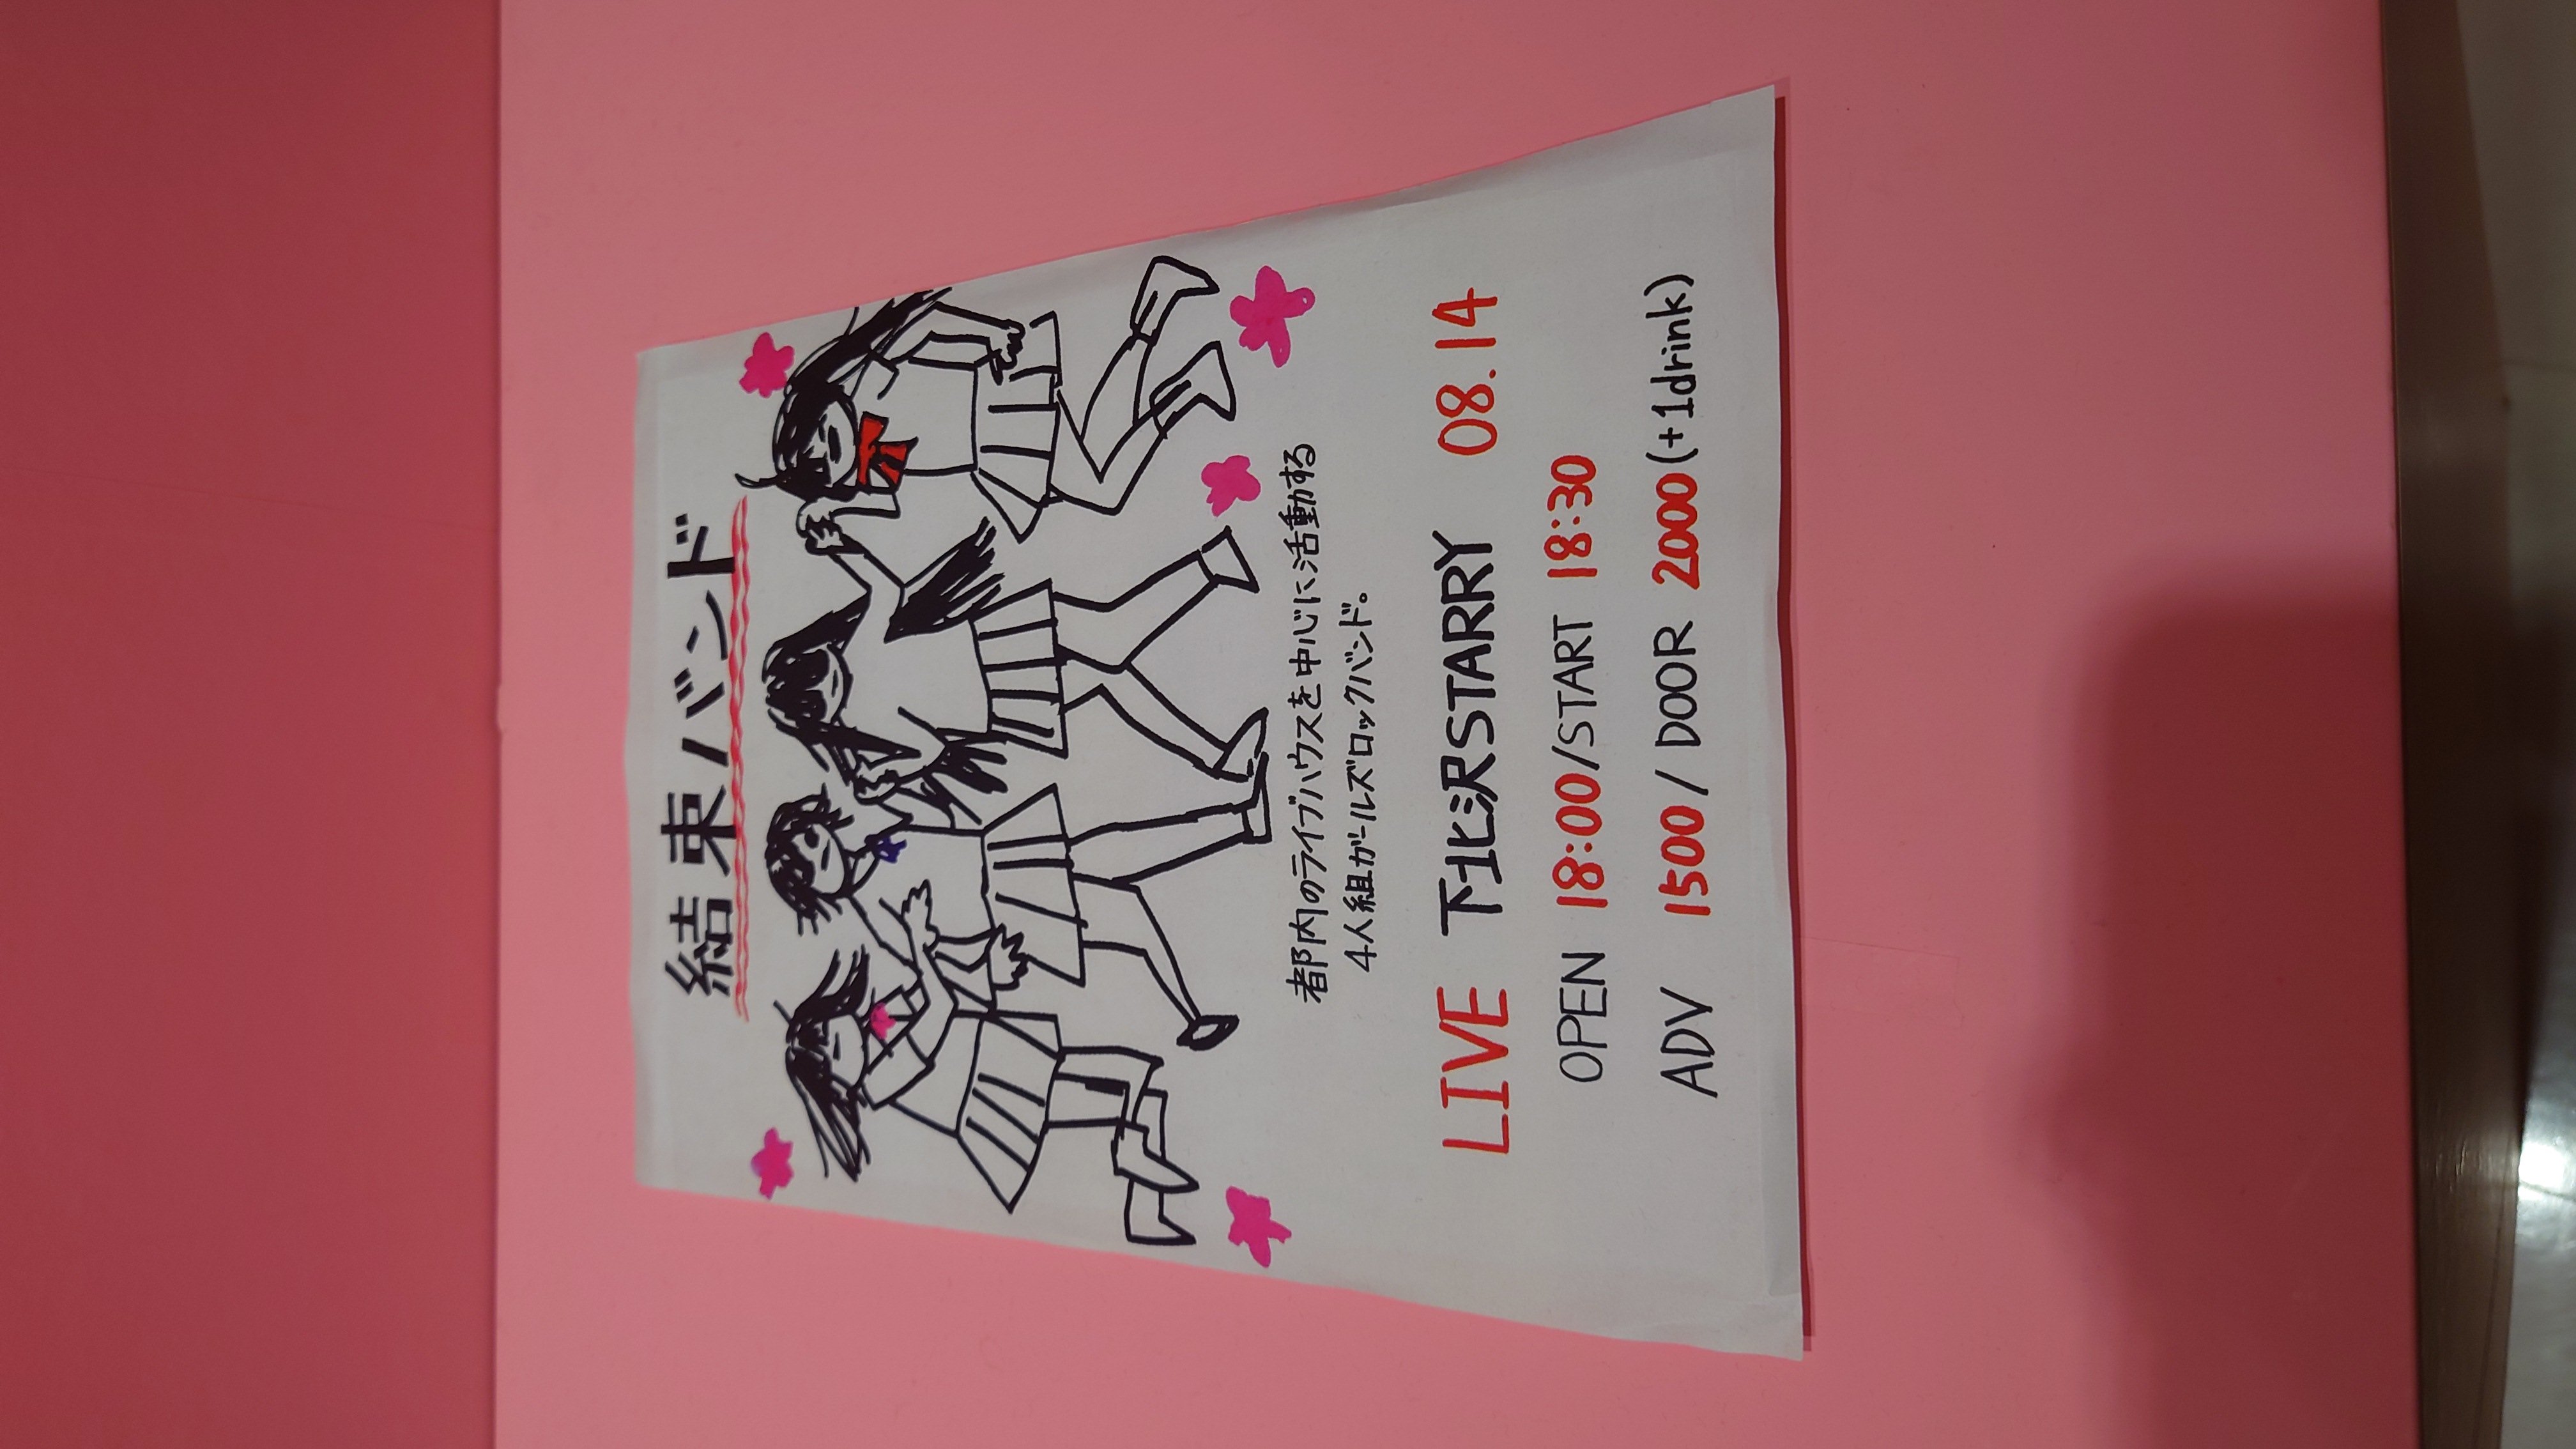 結束バンド
都内のライブハウスを中心に活動する
4人組ガールズロックバンド。
LIVE 下北沢STARRY 08.14
OPEN 18:00/START 18:30
ADV 1500/DOOR 2000(+1drink)